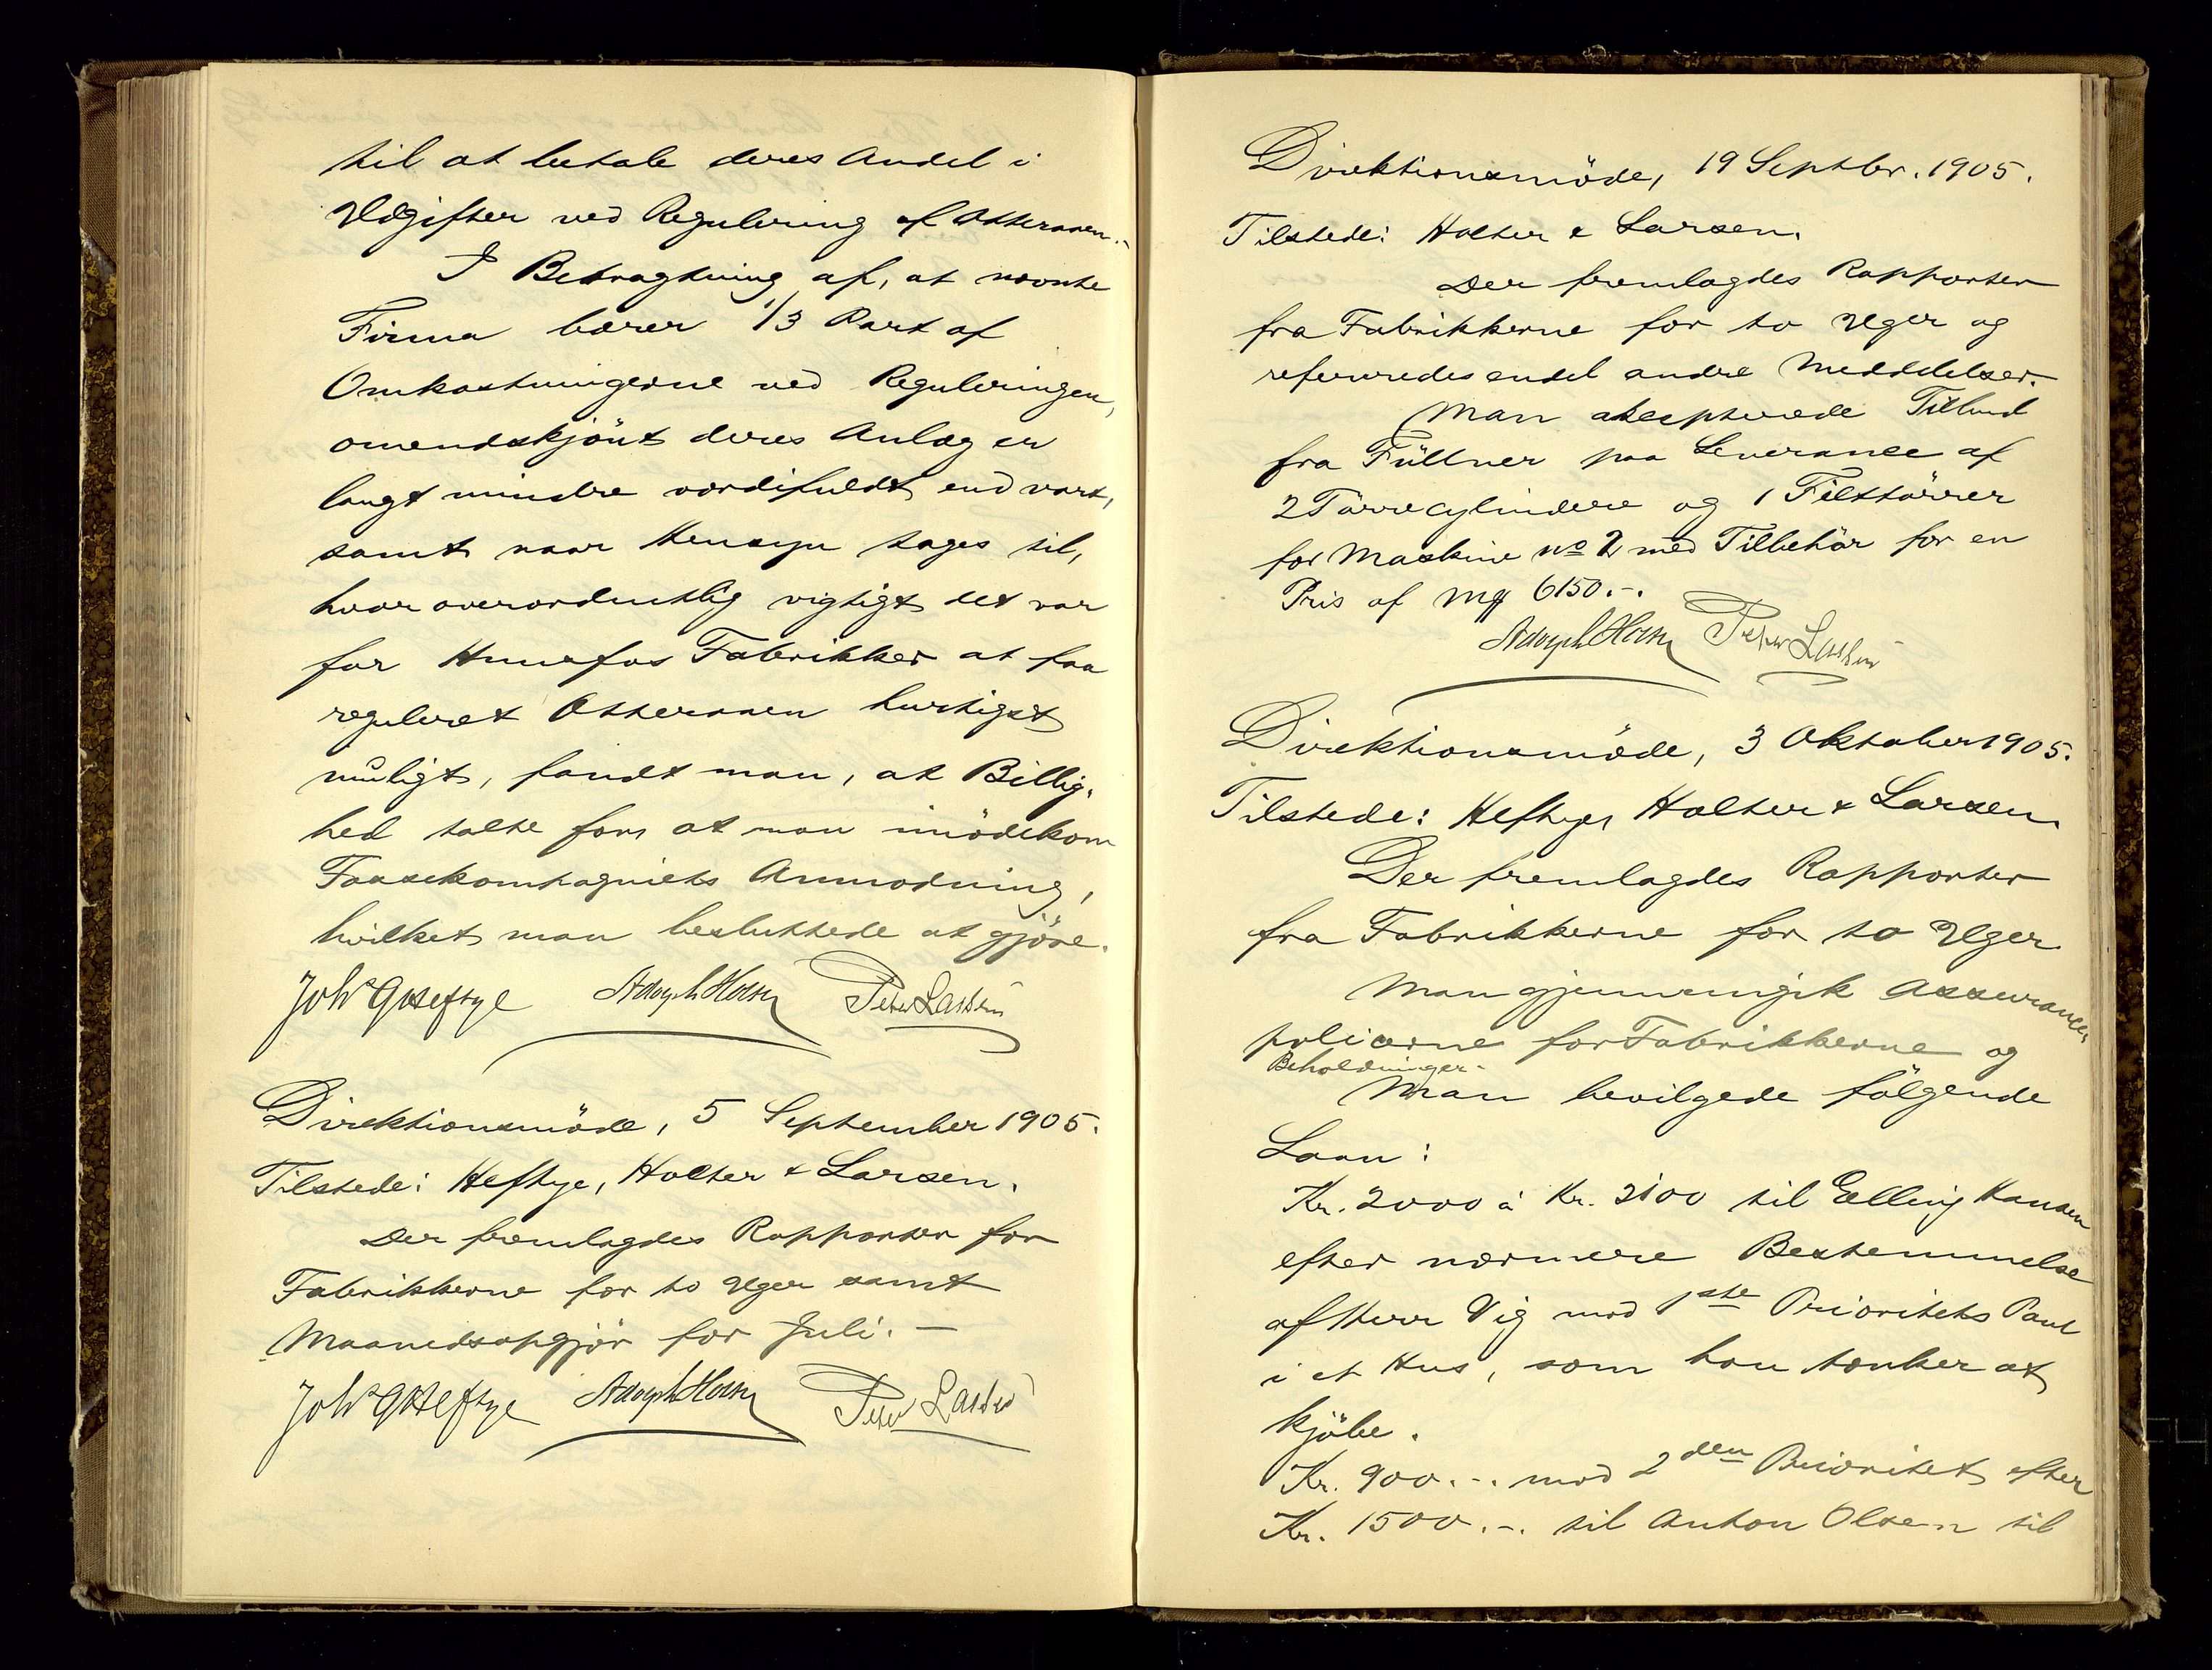 til at betale deres Andel i
Udgifter ved Regulering af Otteraaen.-
I Betragtning af, at nævnte
Firma bærer 1/3 Part af
Omkostningerne ved Reguleringen,
omendskjönt deres Anlæg er
langt mindre værdifuldt end vort,
samt naar Hensyn tages til,
hvor overordentlig vigtigt det var
for Hunsfos Fabrikker at faa
reguleret Otteraaen hurtigst
muligt, fandt man, at Billig-
hed talte for, at man imödekom
Fossekompagniets Anmodning,
hvilket man besluttede at gjöre.
Joh's GHeftye Adolph Holter Peter Larsen
Direktionsmöde, 5 September 1905.
Tilstede: Heftye, Holter & Larsen.
Der fremlagdes Rapporter for
Fabrikkerne for to Uger samt
Maanedsopgjör for Juli. —
Joh's GHeftye Adolph Holter Peter Larsen
Direktionsmöde, 19 Septbr. 1905.
Tilstede: Holter & Larsen.
Der fremlagdes Rapporter
fra Fabrikkerne for to Uger og
refereredes endel andre Meddelser.
Man akcepterede Tilbud
fra Füllner paa Leverance af
2 Törrecylindere og 1 Filttörrer
for Maskine No 2 med Tilbehör for en
Pris af Mk 6150.-.
Adolph Holter Peter Larsen
Direktionsmöde, 3 Oktober 1905.
Tilstede: Heftye, Holter & Larsen.
Der fremlagdes Rapporter
fra Fabrikkerne for to Uger.
Man gjennemgik Assurance-
policerne for Fabrikkerne og
Beholdninger.
Man bevilgede fölgende
Laan:
Kr. 2000 à Kr. 2100 til Elling Hansen
efter nærmere Bestemmelse
af Herr Vig mod 1ste Prioritets Pant
i et Hus, som han tænker at
kjöbe.
Kr. 900.-. mod 2den Prioritet efter
Kr. 1500.-. til Anton Olsen til